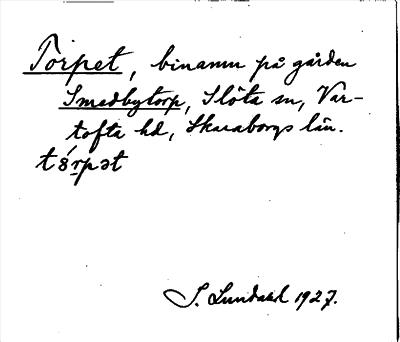 Torpet, binamn på gården
Smedbytorp, Slöta sn, Var-
tofta hd, Skaraborgs län.
t8́rpət
S. Lundahl 1927.